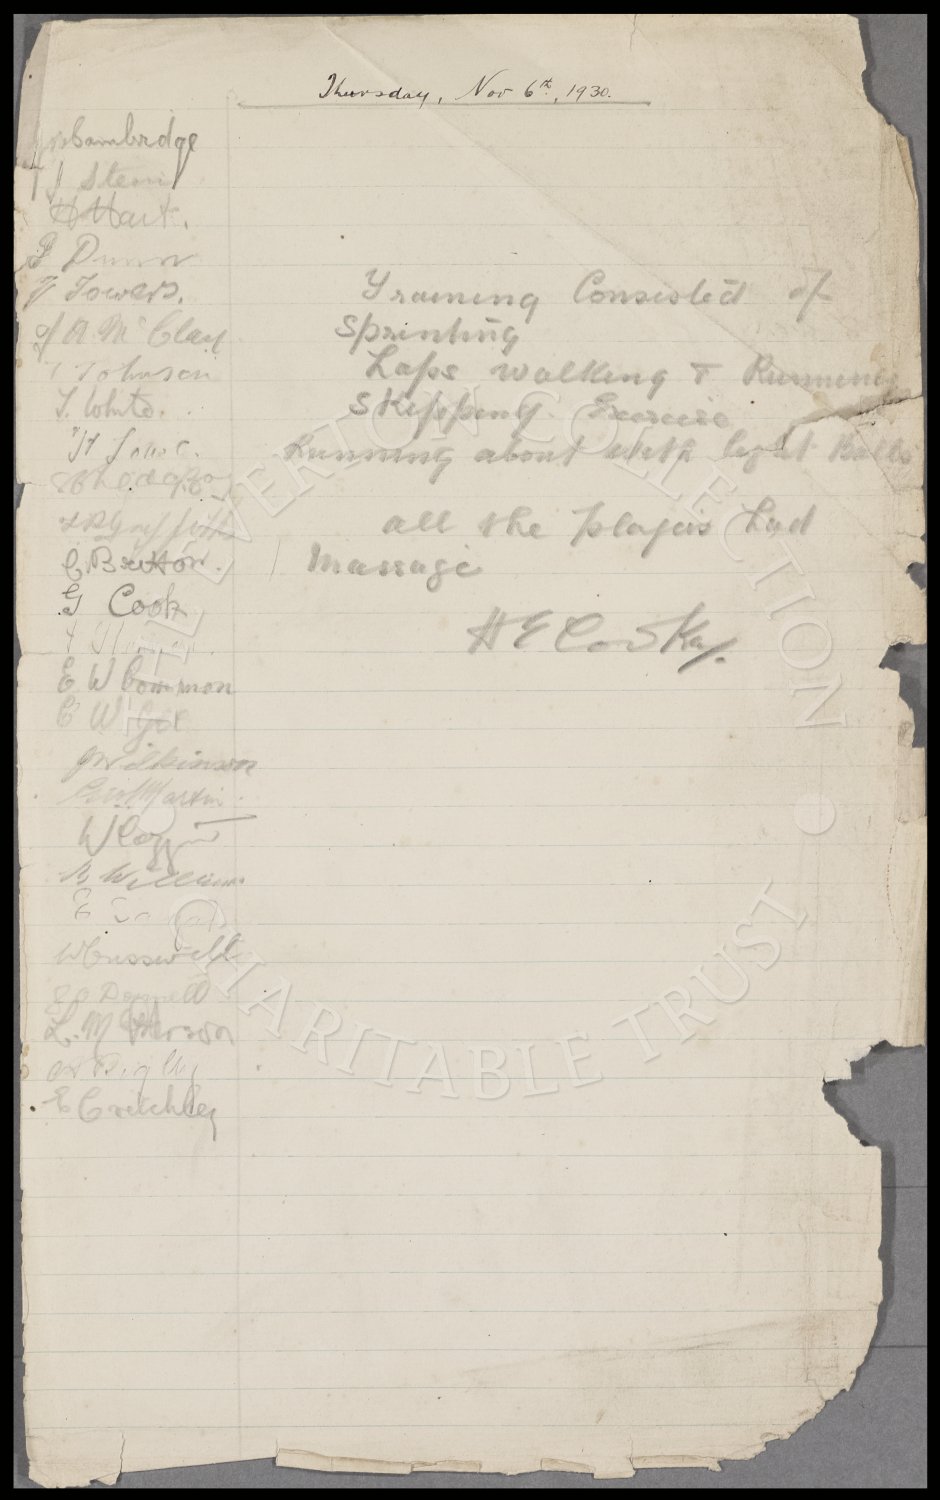 Thursday, Nov 6th, 1930.
Bambridge
T J Stein
H Hart.
D Dunn
J Towers.
J A McClay
T Johnson
T. White.
Training Consisted of
Sprinting
Laps walking & Running
Skipping. Exercise
Running about with light Balls
all the players had
Massage
H E Cooke
C. Britton.
G Cook
E W Common
C W Gee
J Wilkinson
Geo Martin.
W Coggins
B Williams
W Cresswell
L. McPherson
E Critchley
THE EVERTON COLLECTION
CHARITABLE TRUST